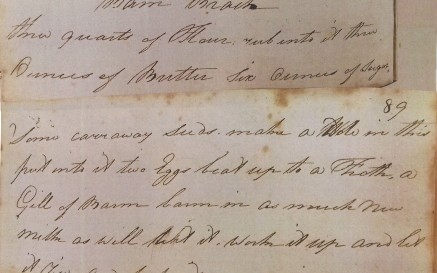 Barn Brack
three quarts of Flour. rub into it three
Ounces of Butter Six Ounces of Sugar
89
Some carraway seeds. make a Hole in this
put into it two Eggs beat up to a Froth, a
Gill of Barm barm in as much New
milk as will it. work it up and let
it